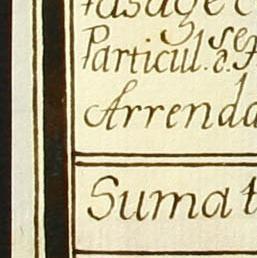 Pasage
Particul.
Arrenda
Suma t